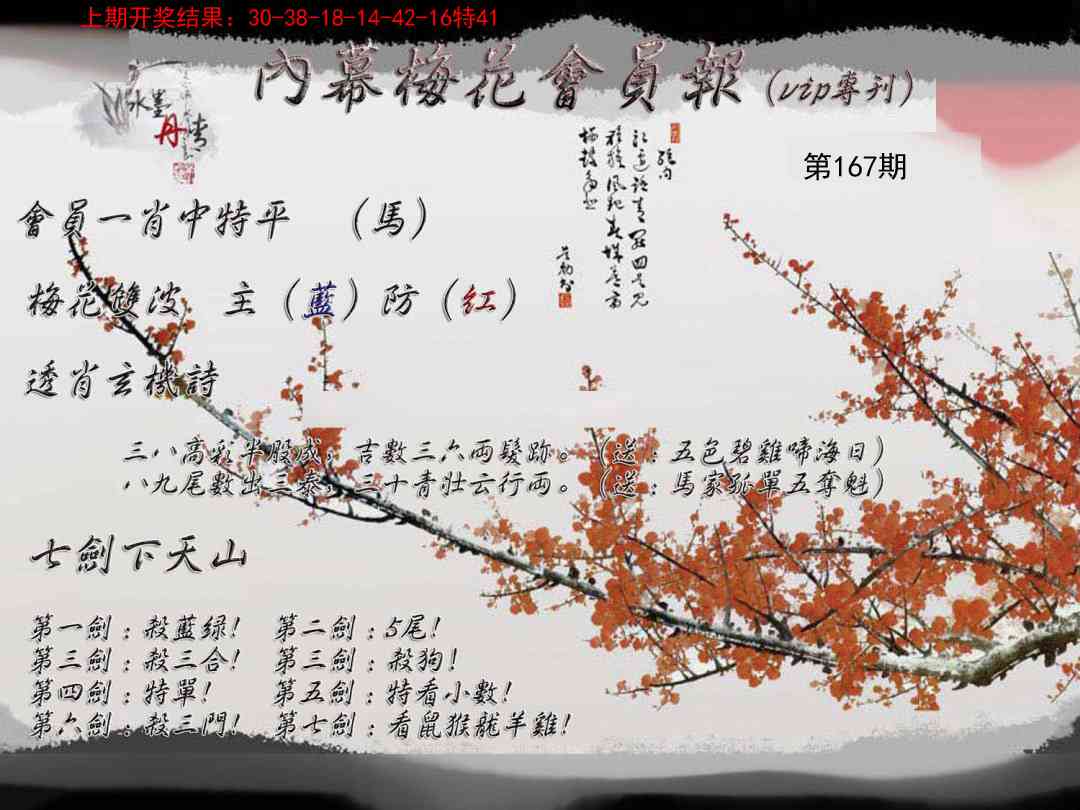 上期开奖结果：30-38-18-14-42-16特41
內幕梅花會員報(vip專刊)
水墨丹青
第167期
會員一肖中特平 （馬）
梅花雙波 主（藍）防（紅）
透肖玄機詩
三八高彩半股成，吉數三六両髮跡。（送：五色碧雞啼海日）
八九尾數出三泰，三十青壮云行両。（送：馬家孤單五奪魁）
七劍下天山
第一劍：殺藍绿! 第二劍：5尾!
第三劍：殺三合! 第三劍：殺狗!
第四劍：特單! 第五劍：特看小數!
第六劍：殺三門! 第七劍：看鼠猴龍羊雞!